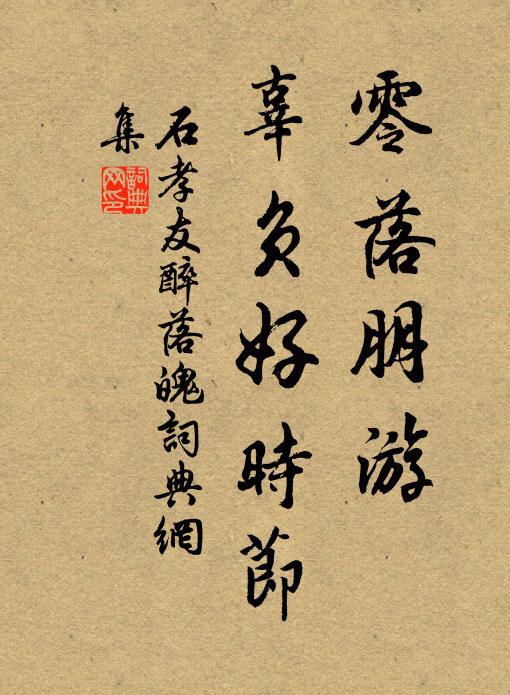 零落朋游
辜负好時節
石孝友醉落魄詞典網
集
詞典
网印